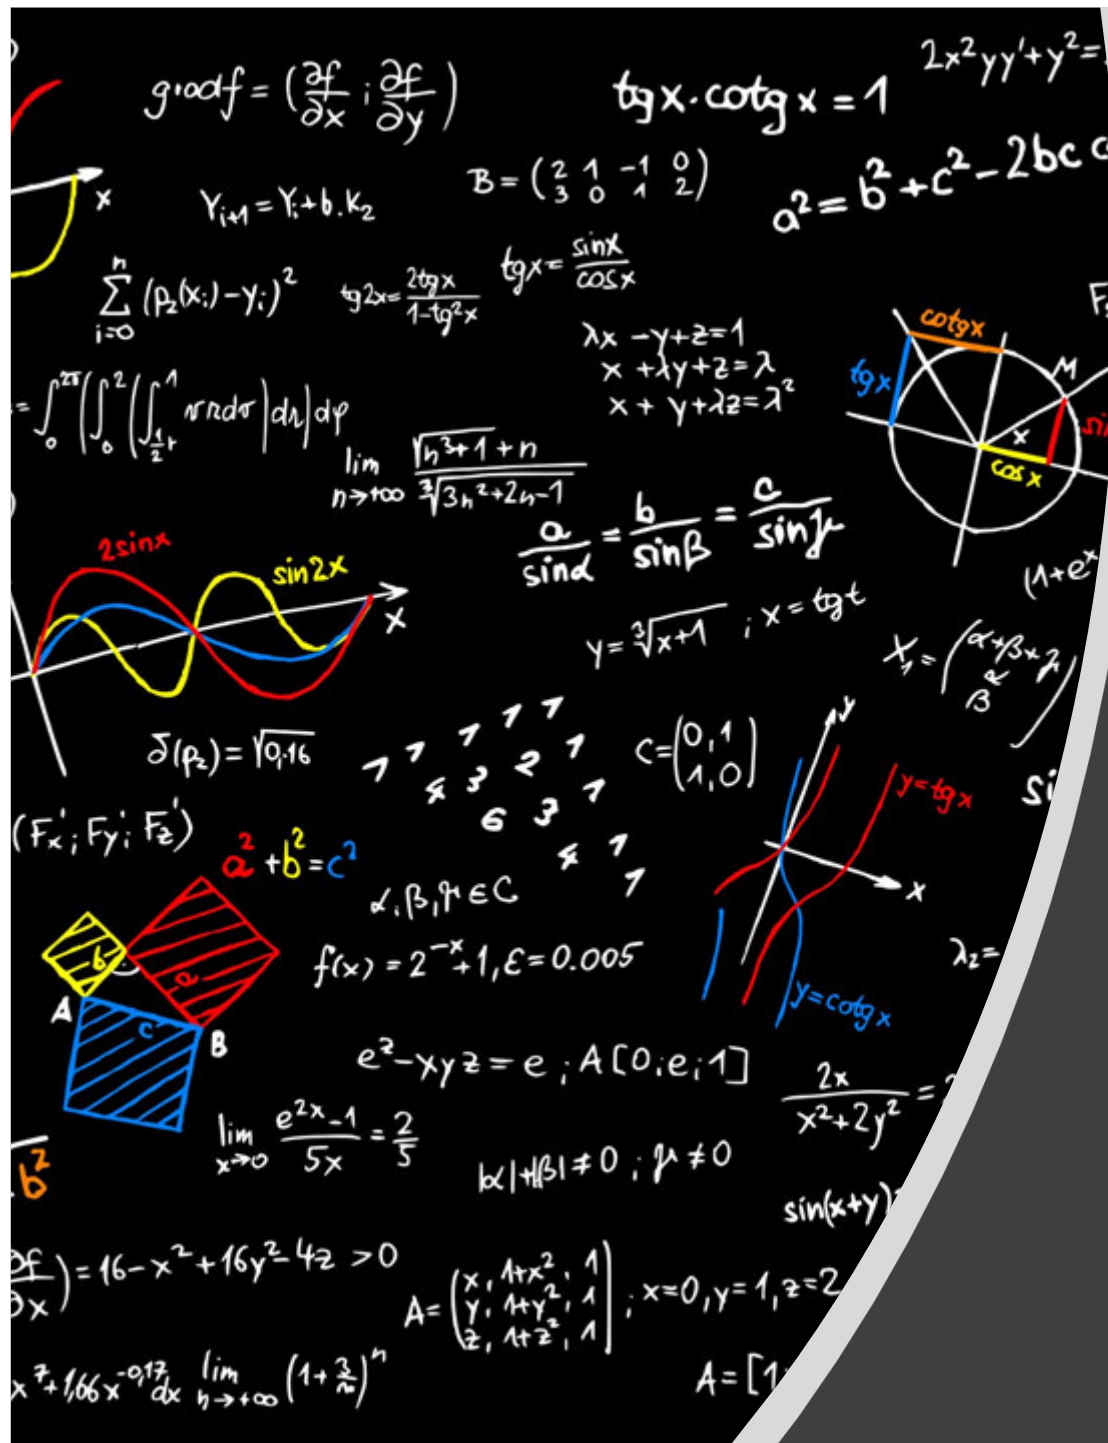 gradf = (∂f/∂x ; ∂f/∂y)
tgx.cotgx = 1
2x²yy'+y²=
B = (2 1 -1 0
3 0 1 2)
a² = b²+c²-2bc
Yi+1 = Yi+b.K2
∑ i=0 n (p2(xi)-yi)²
tg2x = 2tgx/1-tg²x
tgx = sinx/cosx
x
λx -y+z=1
x +λy+z=λ
x + y+λz=λ²
cotgx
tgx
M
x
cosx
lim n→+∞ √n³+1+n / ∛3n²+2n-1
a/sinα = b/sinβ = c/sinγ
2sinx
sin2x
x
(1+eˣ
y = ∛x+1 ; x = tgt
X1 = (α+β+γ
α
β)
δ(p2) = √0,16
1 1 1 1 1
4 3 2 1
6 3 1
4 1
1
C = (0,1
1,0)
y
y=tgx
x
y=cotgx
(Fx'; Fy'; Fz')
a²+b²=c²
b
a
c
A
B
α,β,γ ∈ C
f(x) = 2⁻ˣ+1, ε = 0.005
λ2=
e^z-xyz = e ; A[0;e;1]
2x/x²+2y² =
lim x→0 e²ˣ-1/5x = 2/5
b²
|α|+|β| ≠ 0 ; γ ≠ 0
sin(x+y)
∂f/∂x) = 16-x²+16y²-4z > 0
A = (x, 1+x², 1
y, 1+y², 1
z, 1+z², 1) ; x=0, y=1, z=2
x⁷+1,66x^-0,17 dx
lim n→+∞ (1+3/n)ⁿ
A=[1